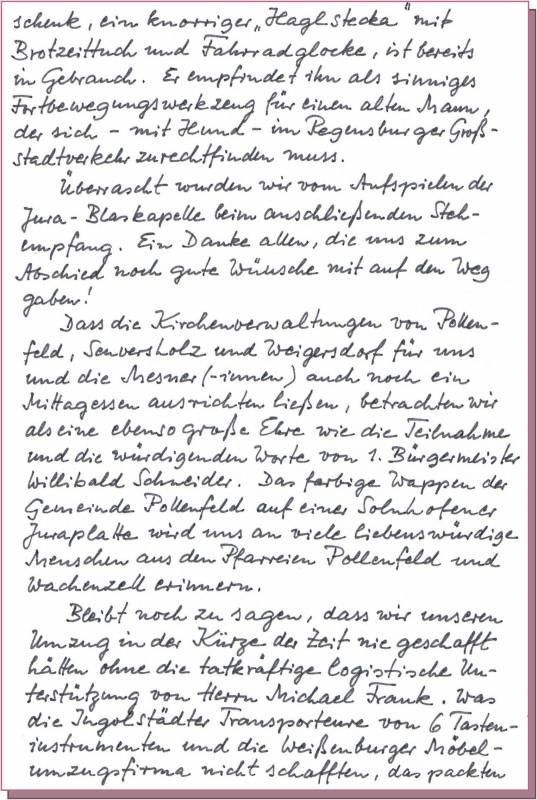 schenk, ein knorriger „Haglstecka" mit
Brotzeittuch und Fahrradglocke, ist bereits
in Gebrauch. Er empfindet ihn als sinniges
Fortbewegungswerkzeug für einen alten Mann,
der sich - mit Hund - im Regensburger Groß-
stadtverkehr zurechtfinden muss.
Überrascht wurden wir vom Aufspielen der
Jura-Blaskapelle beim anschließenden Steh-
empfang. Ein Danke allen, die uns zum
Abschied noch gute Wünsche mit auf den Weg
gaben!
Dass die Kirchenverwaltungen von Pollen-
feld, Seuversholz und Weigersdorf für uns
und die Mesner (-innen) auch noch ein
Mittagessen ausrichten ließen, betrachten wir
als eine ebenso große Ehre wie die Teilnahme
und die würdigenden Worte von 1. Bürgermeister
Willibald Schneider. Das farbige Wappen der
Gemeinde Pollenfeld auf einer Solnhofener
Juraplatte wird uns an viele liebenswürdige
Menschen aus den Pfarreien Pollenfeld und
Wachenzell erinnern.
Bleibt noch zu sagen, dass wir unseren
Umzug in der Kürze der Zeit nie geschafft
hätten ohne die tatkräftige logistische Un-
terstützung von Herrn Michael Frank. Was
die Ingolstädter Transporteure von 6 Tasten-
instrumenten und die Weißenburger Möbel-
umzugsfirma nicht schafften, das packten